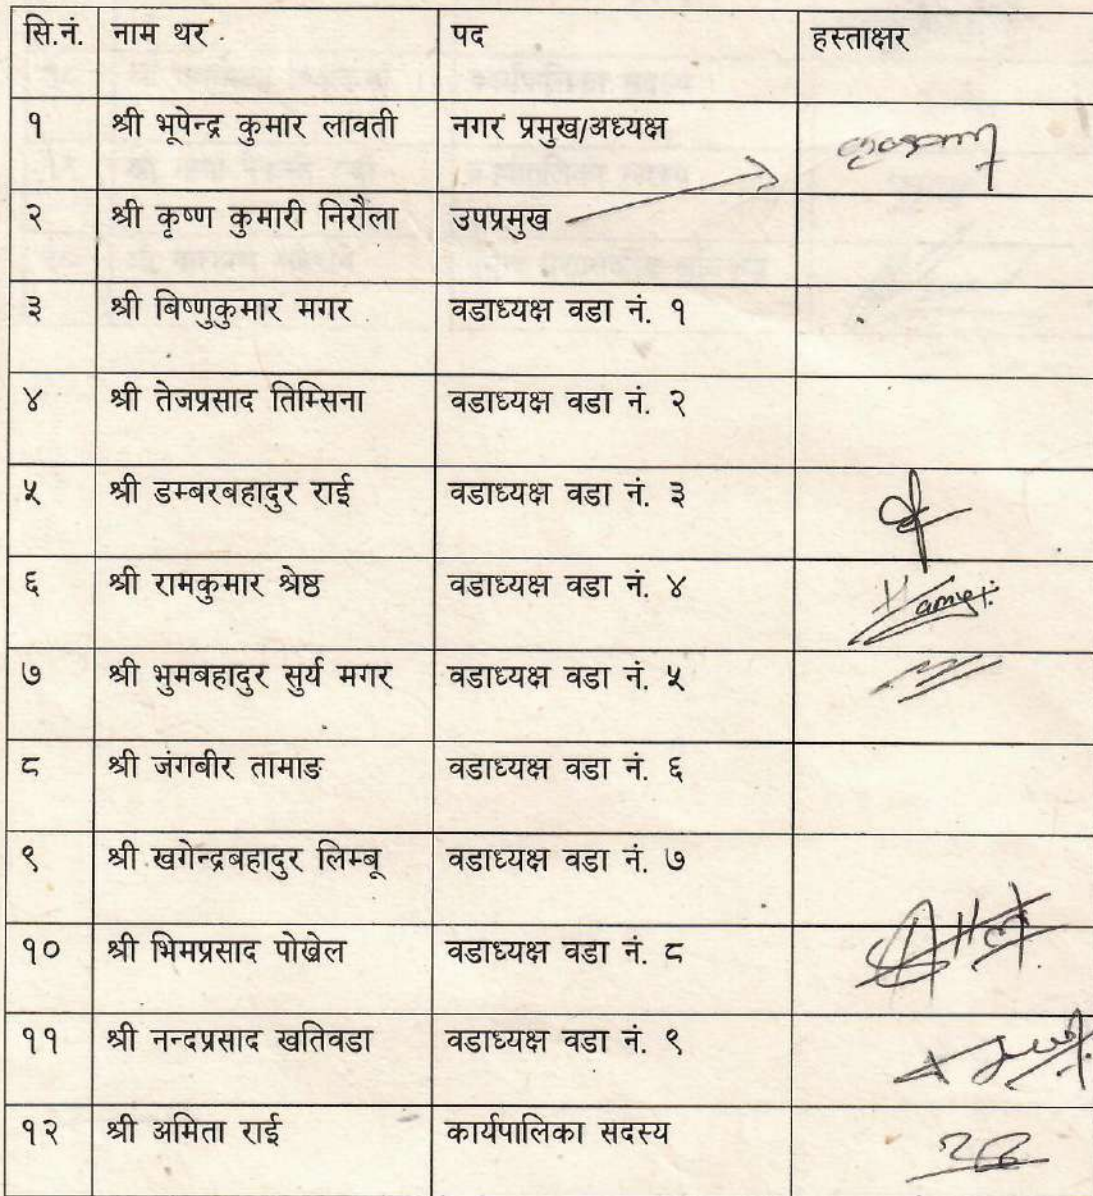 सि.नं. नाम थर पद हस्ताक्षर
१ श्री भूपेन्द्र कुमार लावती नगर प्रमुख/अध्यक्ष
२ श्री कृष्ण कुमारी निरौला उपप्रमुख
३ श्री बिष्णुकुमार मगर वडाध्यक्ष वडा नं. १
४ श्री तेजप्रसाद तिम्सिना वडाध्यक्ष वडा नं. २
५ श्री डम्बरबहादुर राई वडाध्यक्ष वडा नं. ३
६ श्री रामकुमार श्रेष्ठ वडाध्यक्ष वडा नं. ४
७ श्री भुमबहादुर सुर्य मगर वडाध्यक्ष वडा नं. ५
८ श्री जंगबीर तामाङ वडाध्यक्ष वडा नं. ६
९ श्री खगेन्द्रबहादुर लिम्बू वडाध्यक्ष वडा नं. ७
१० श्री भिमप्रसाद पोख्रेल वडाध्यक्ष वडा नं. ८
११ श्री नन्दप्रसाद खतिवडा वडाध्यक्ष वडा नं. ९
१२ श्री अमिता राई कार्यपालिका सदस्य